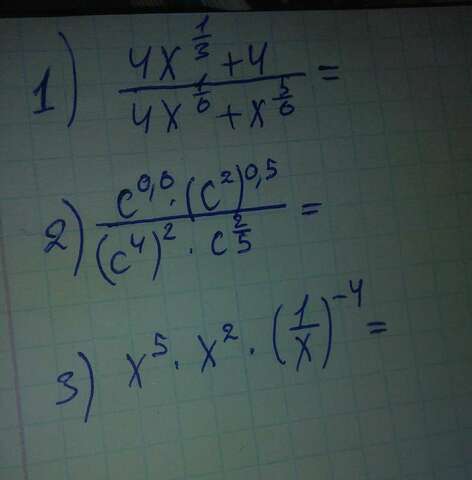 1) \frac{4x^{\frac{1}{3}}+4}{4x^{\frac{1}{6}}+x^{\frac{5}{6}}} =
2) \frac{c^{0,6} \cdot (c^2)^{0,5}}{(c^4)^2 \cdot c^{\frac{2}{5}}} =
3) x^5 \cdot x^2 \cdot \left(\frac{1}{x}\right)^{-4} =